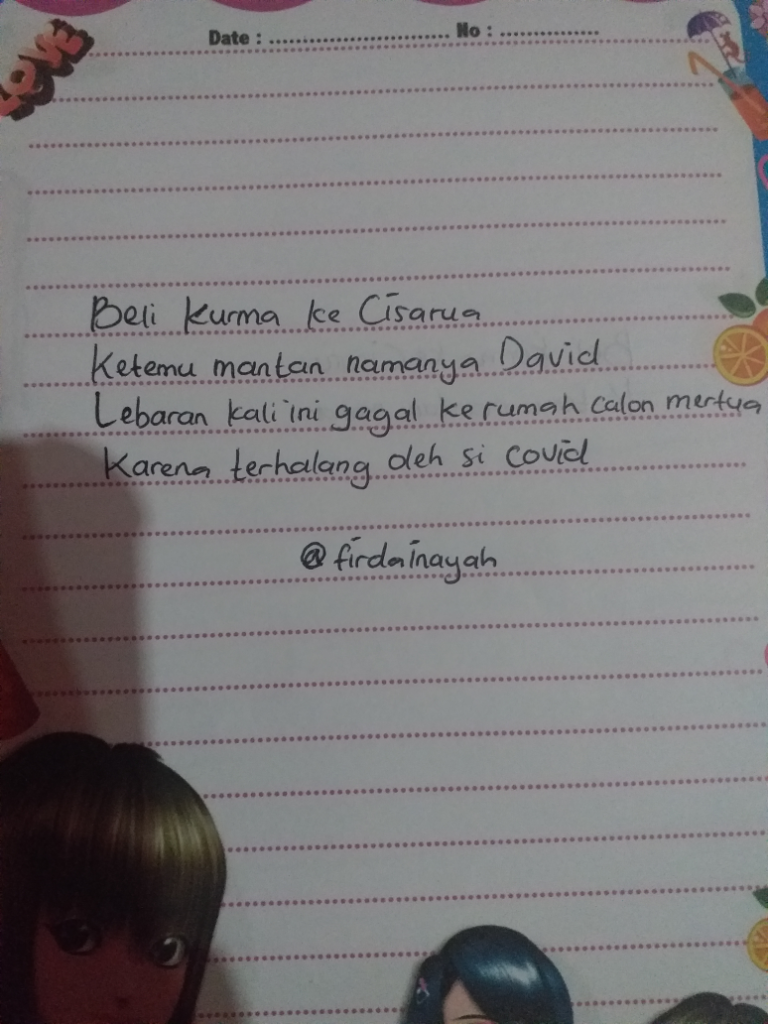 LOVE
Date : ............................ No : ...............
Beli Kurma ke Cisarua
Ketemu mantan namanya David
Lebaran kali ini gagal ke rumah calon mertua
Karena terhalang oleh si covid
@firdainayah